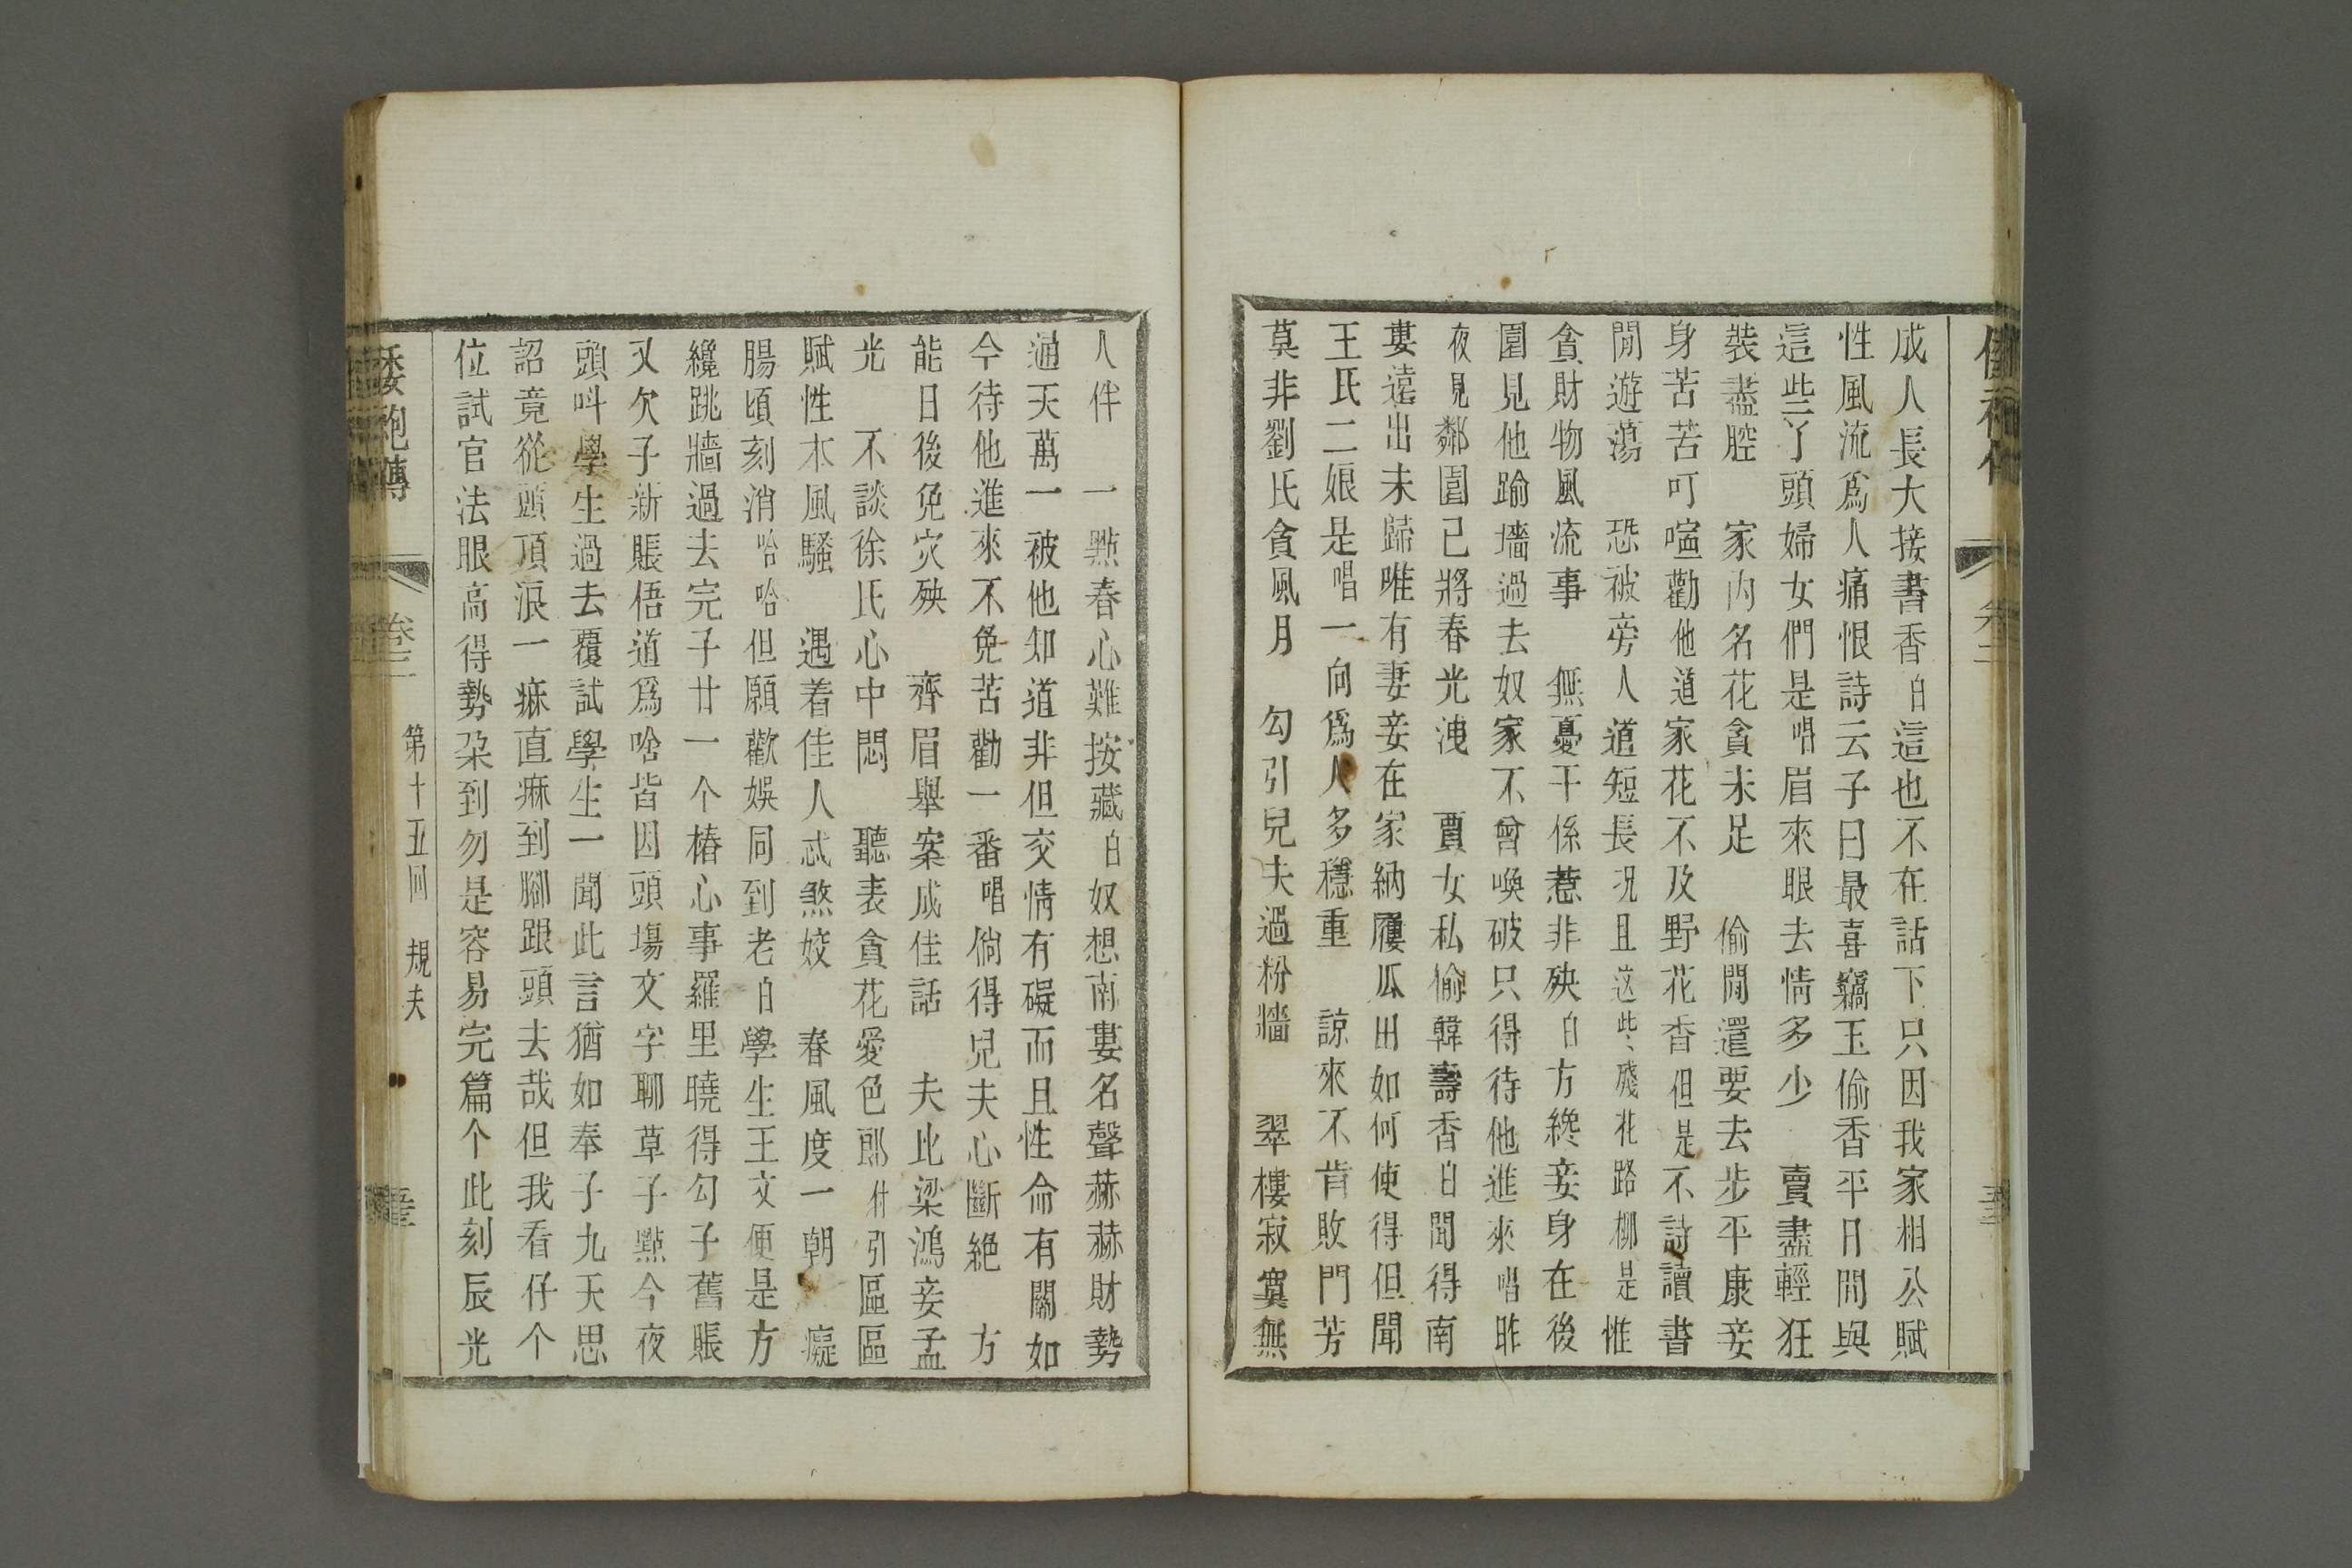 成人長大接書香白這也不在話下只因我家相公賦
性風流爲人痛恨詩云子曰最喜竊玉偷香平日間與
這些丫頭婦女們是唱眉來眼去情多少 賣盡輕狂
裝盡腔 家內名花貪未足 偷閒還要去步平康妾
身苦苦叮嚀勸他道家花不及野花香但是不詩讀書
閒遊蕩 恐被旁人道短長況且這些殘花路柳是惟
貪財物風流事 無憂干係惹非殃白方纔妾身在後
園見他踰墻過去奴家不曾喚破只得待他進來唱昨
夜見鄰園已將春光洩 賈女私偷韓壽香白聞得南
婁遠出未歸唯有妻妾在家納履瓜田如何使得但聞
王氏二娘是唱一向爲人多穩重 諒來不肯敗門芳
莫非劉氏貪風月 勾引兒夫過粉牆 翠樓寂寞無
人伴 一點春心難按藏白奴想南婁名聲赫赫財勢
通天萬一被他知道非但交情有礙而且性命有關如
今待他進來不免苦勸一番唱倘得兒夫心斷絕 方
能日後免災殃 齊眉舉案成佳話 夫比梁鴻妾孟
光 不談徐氏心中悶 聽表貪花愛色郎付引區區
賦性本風騷 遇着佳人忒煞姣 春風度一朝 癡
腸頃刻消哈哈但願歡娛同到老白學生王文便是方
纔跳牆過去完子廿一个樁心事羅里曉得勾子舊賬
又欠子新賬倍道爲啥皆因頭塲文字聊草子點今夜
頭呌學生過去覆試學生一聞此言猶如奉子九天思
詔竟從頭頂浪一痳直痳到腳跟頭去哉但我看仔个
位試官法眼高得勢朶到勿是容易完篇个此刻辰光
倭袍傳 卷二 第十五回 規夫